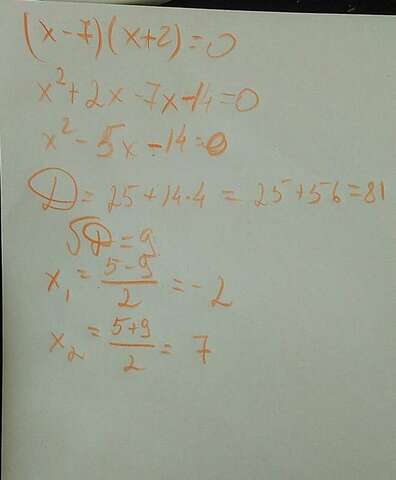 (x-7)(x+2)=0
x²+2x-7x-14=0
x²-5x-14=0
D=25+14·4=25+56=81
√D=9
x₁=(5-9)/2=-2
x₂=(5+9)/2=7